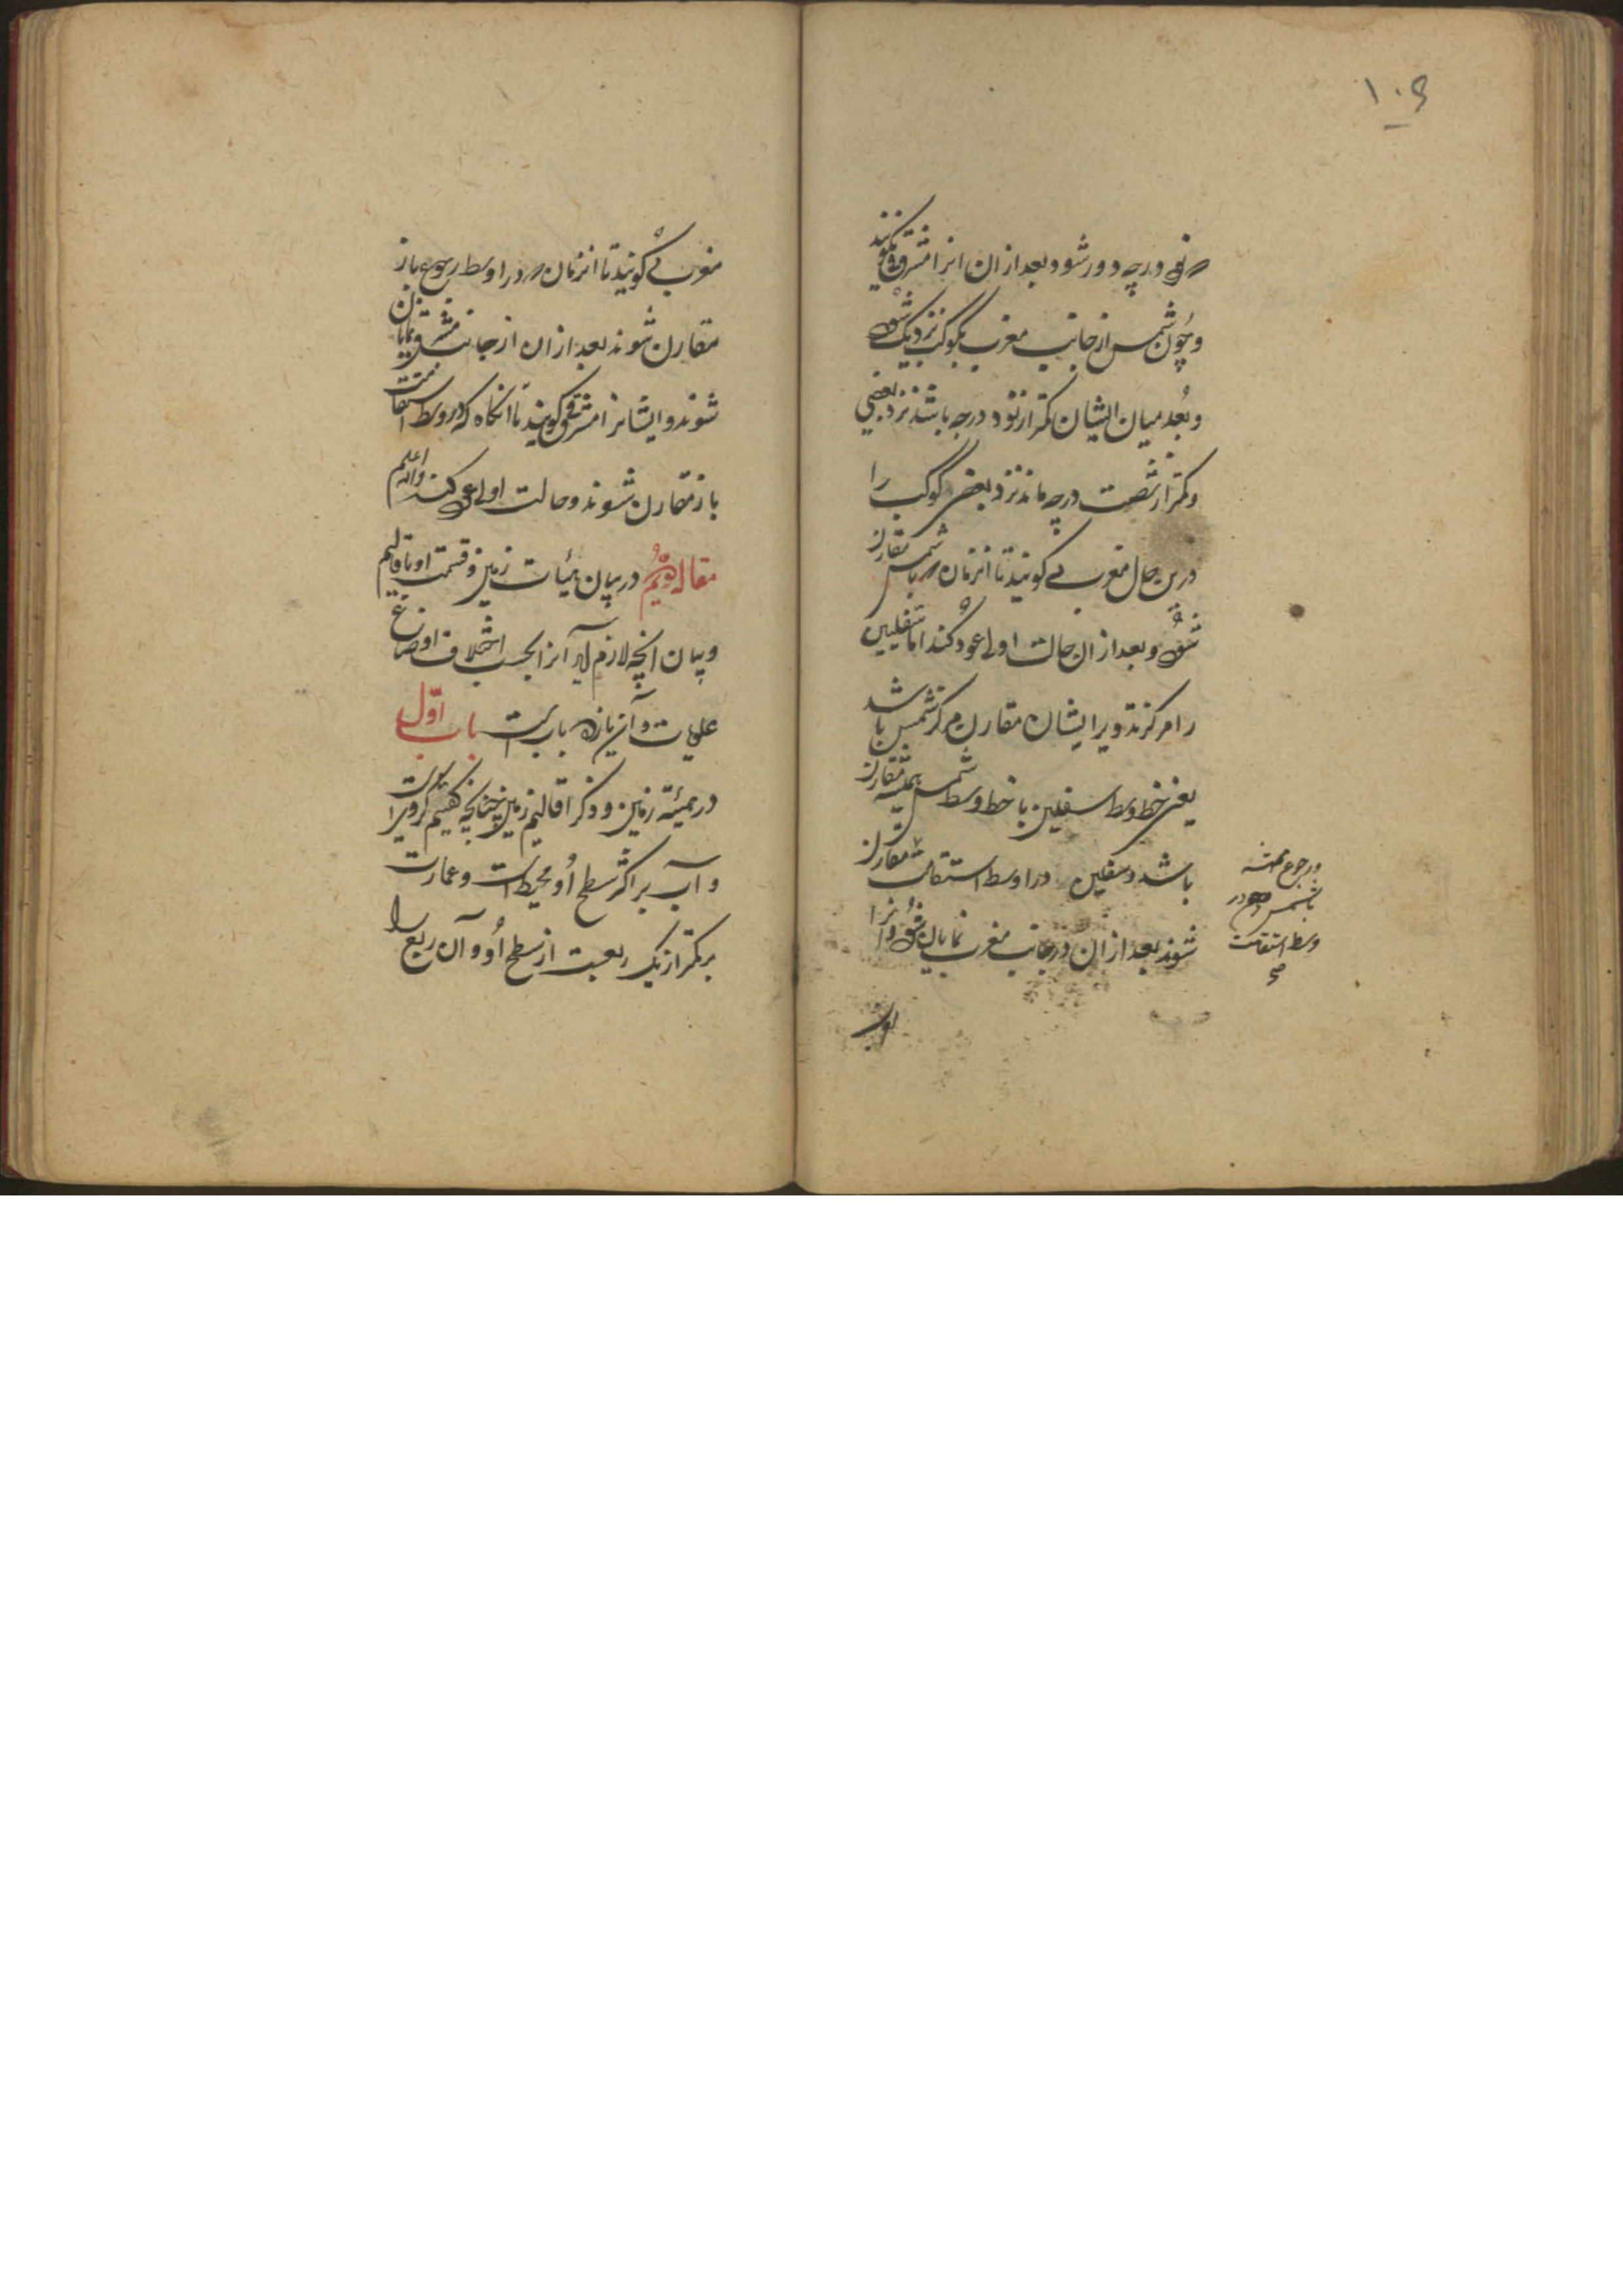 ۱۰۶
نود درجه دور شود بعد ازان انرا مشرقی نکویند
و چون شمس از جانب مغرب بکوکب نزدیک شود
و بُعد میان ایشان کمتر از نود درجه باشد نزد بعضی
و کمتر از شصت درجه ماند نزد بعضی کوکب را
درین حال مغربی کویند تا انزمان که با شمس مقارن
شود و بعد ازان حالت اولی عود کند اما سفلیین
را مرکز تدویر ایشان مقارن مرکز شمس باشد
یعنی خط وسط سفلیین با خط وسط شمس همیشه مقارن
باشد و سفلیین در اواسط استقامت مقارن
شوند بعد ازان در جانب مغرب نمایان شوند و انرا
ورجوع همیشه
با شمس در
وسط استقامت
صح
مغربی کویند تا انزمان که در اواسط رجوع باز
مقارن شوند بعد ازان از جانب مشرق نمایان
شوند و ایشانرا مشرقی کویند تا انکاه که در وسط استقامت
باز مقارن شوند و حالت اولی عود کند والله اعلم
مقاله دویّم در بیان هیئات زمین و قسمت او باقالیم
و بیان انچه لازم آید آنرا بحسب اختلاف اوضاع
علویات و آن یازده باب است باب اوّل
در هیئة زمین و ذکر اقالیم زمین چنانچه کفتیم کرویست
و آب بر اکثر سطح اُو محیط است و عمارت
بر کمتر از یک ربعست از سطح اُو و آن ربع را